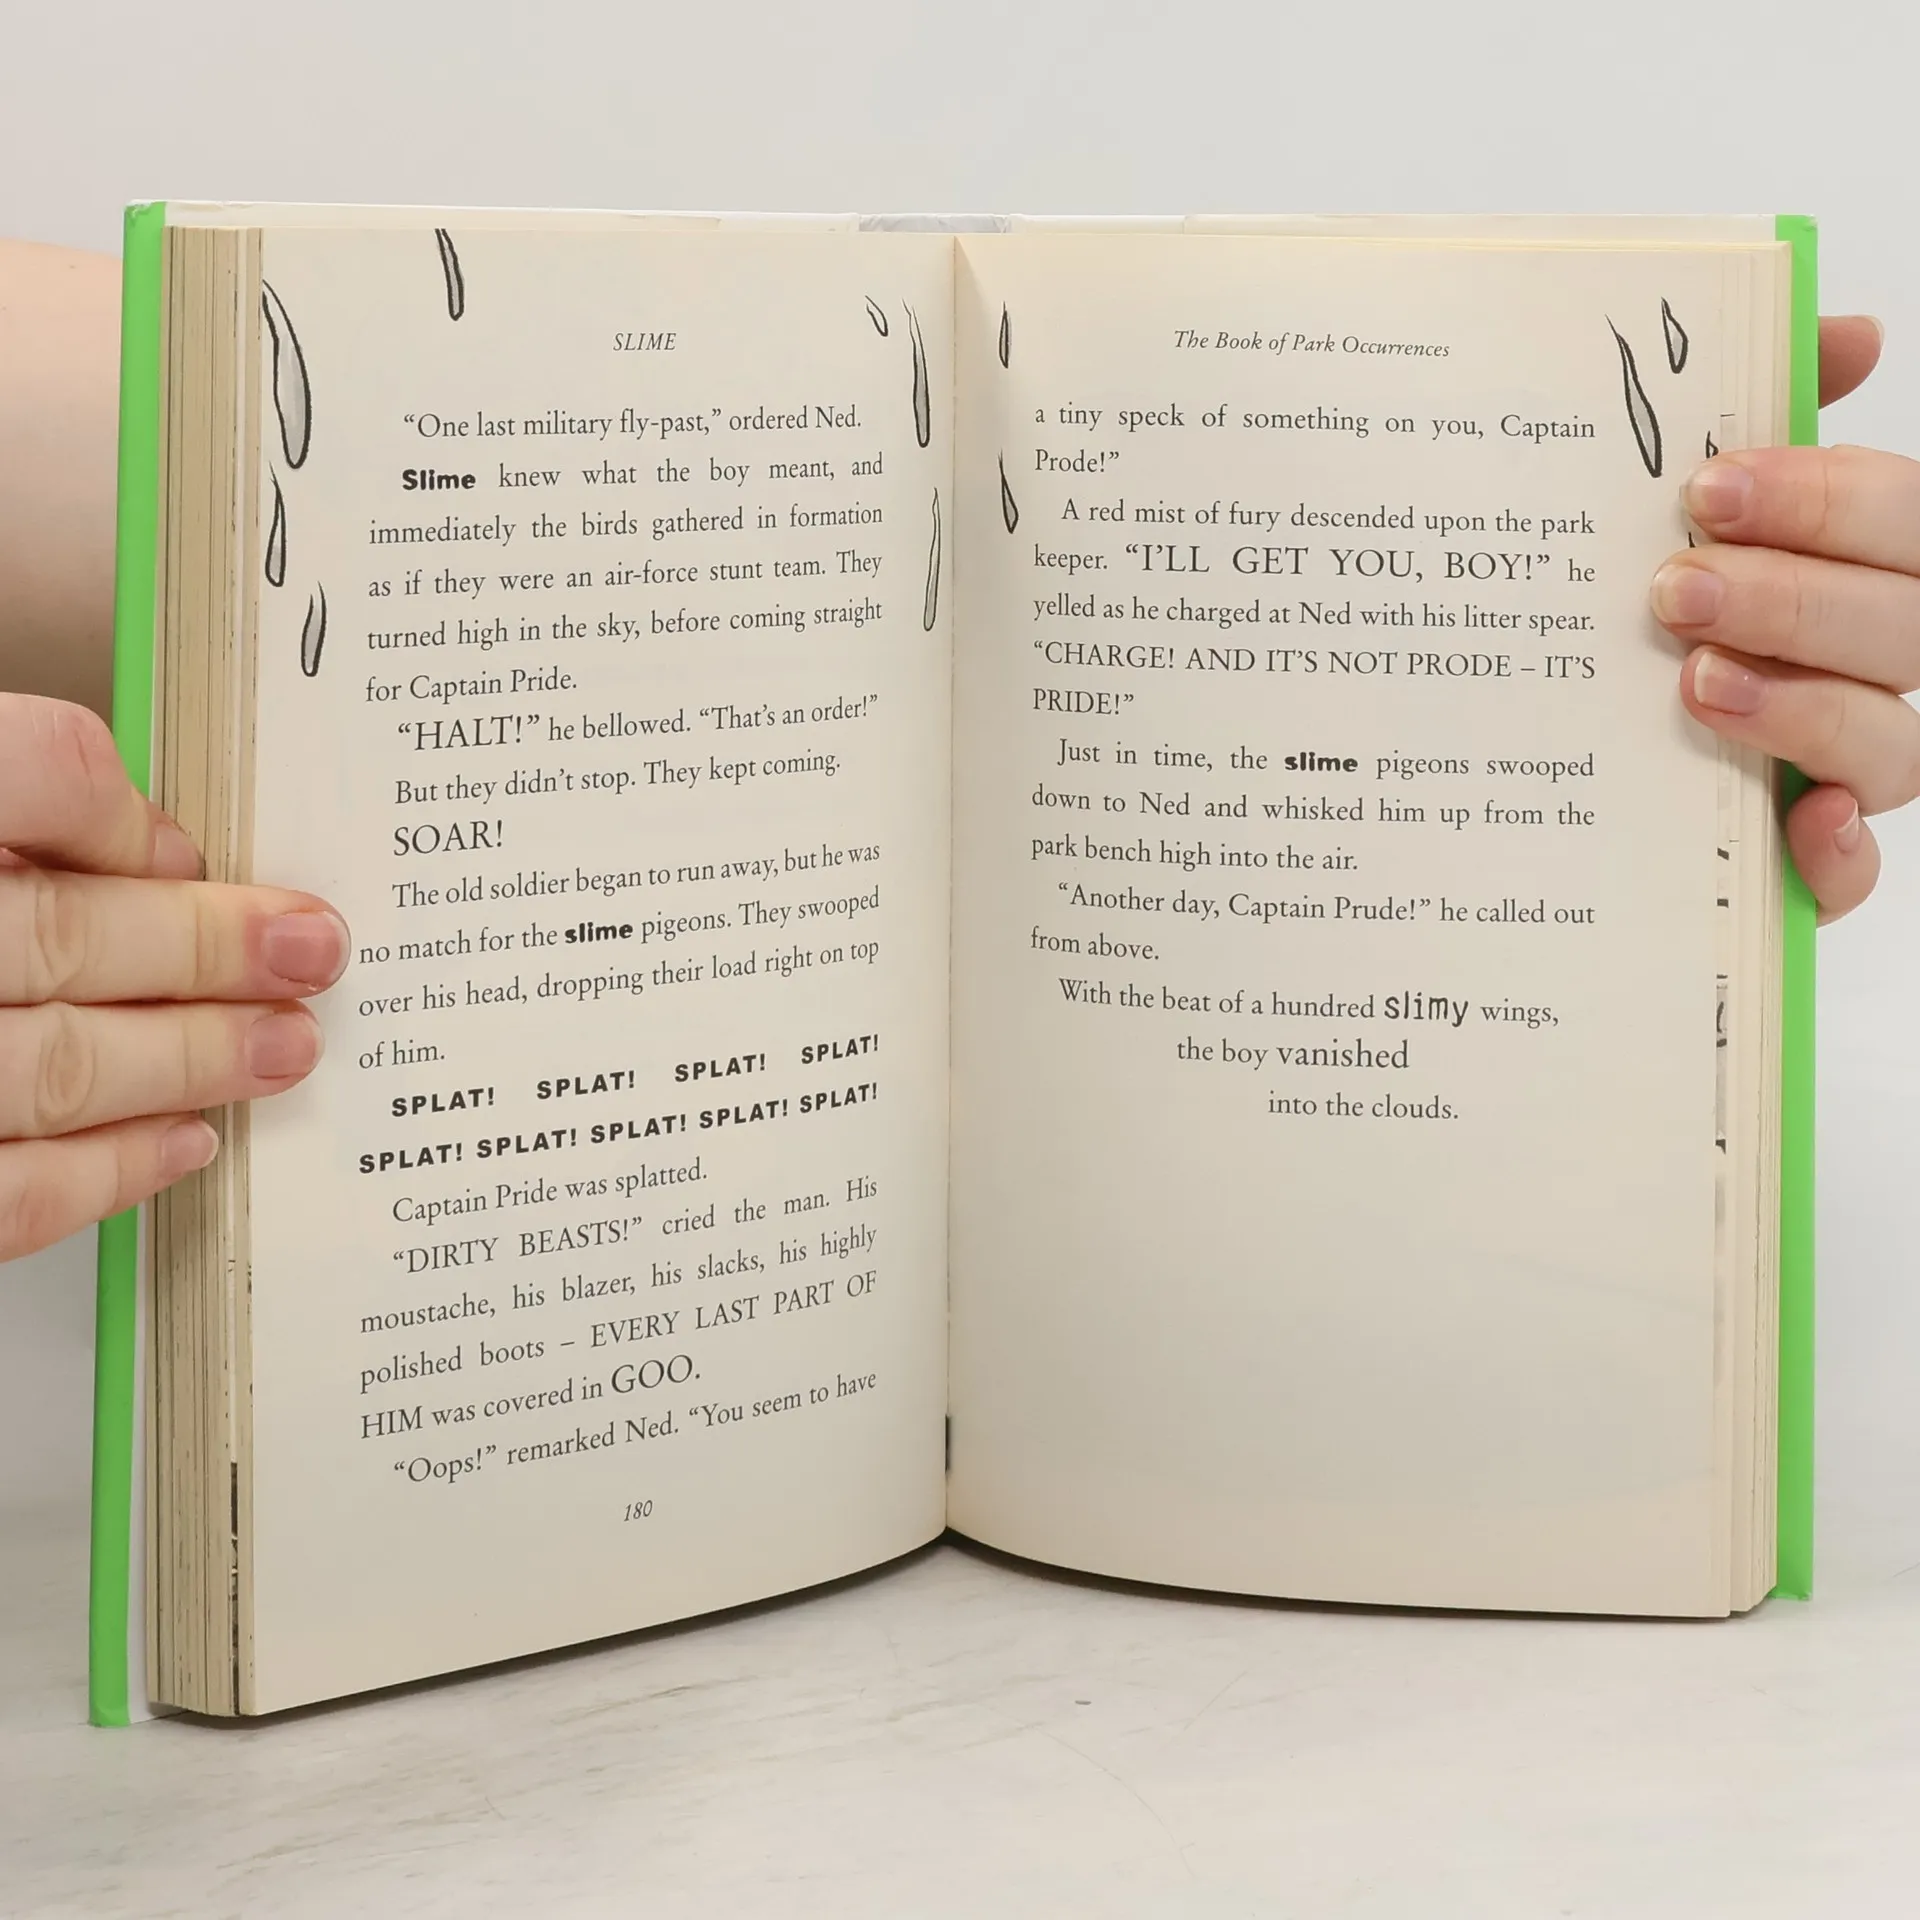 SLIME
“One last military fly-past,” ordered Ned.
Slime knew what the boy meant, and
immediately the birds gathered in formation
as if they were an air-force stunt team. They
turned high in the sky, before coming straight
for Captain Pride.
“HALT!” he bellowed. “That’s an order!”
But they didn’t stop. They kept coming.
SOAR!
The old soldier began to run away, but he was
no match for the slime pigeons. They swooped
over his head, dropping their load right on top
of him.
SPLAT! SPLAT! SPLAT! SPLAT!
SPLAT! SPLAT! SPLAT! SPLAT! SPLAT!
Captain Pride was splatted.
“DIRTY BEASTS!” cried the man. His
moustache, his blazer, his slacks, his highly
polished boots – EVERY LAST PART OF
HIM was covered in GOO.
“Oops!” remarked Ned. “You seem to have
180
The Book of Park Occurrences
a tiny speck of something on you, Captain
Prode!”
A red mist of fury descended upon the park
keeper. “I’LL GET YOU, BOY!” he
yelled as he charged at Ned with his litter spear.
“CHARGE! AND IT’S NOT PRODE – IT’S
PRIDE!”
Just in time, the slime pigeons swooped
down to Ned and whisked him up from the
park bench high into the air.
“Another day, Captain Prude!” he called out
from above.
With the beat of a hundred slimy wings,
the boy vanished
into the clouds.